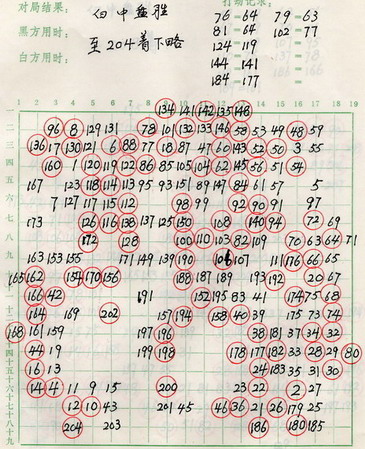 对局结果: 白中盘胜 打劫记录:
黑方用时: 至204着下略
白方用时:
76=64 79=63
81=64 102=77
124=119
144=141
184=177
1 2 3 4 5 6 7 8 9 10 11 12 13 14 15 16 17 18 19
134 121 142 135 148
96 8 129 131 78 101 132 133 146 58 53 49 48 59
136 17 130 121 6 88 77 18 87 47 60 143 52 50 3 55
160 1 120 119 122 86 85 105 104 62 145 56 51 54
167 123 118 114 113 95 93 151 89 147 84 61 57 5
7 127 117 115 112 98 99 92 90 91 97
173 126 116 138 137 125 150 108 140 94 72 69
172 128 100 110 103 82 109 70 63 64 71
163 153 155 171 149 139 190 106 107 111 176 66 65
165 162 154 170 156 188 187 189 193 192 20 67
166 42 191 152 195 83 41 174 75 68
164 169 202 157 194 158 40 39 175 73 74
168 161 159 197 196 38 181 37 34 32
44 19 199 198 178 177 182 33 28 29 80
16 13 24 183 35 31 30
14 4 11 9 15 200 23 22 2 27
12 10 43 201 45 46 36 21 26 179 25
204 203 186 180 185